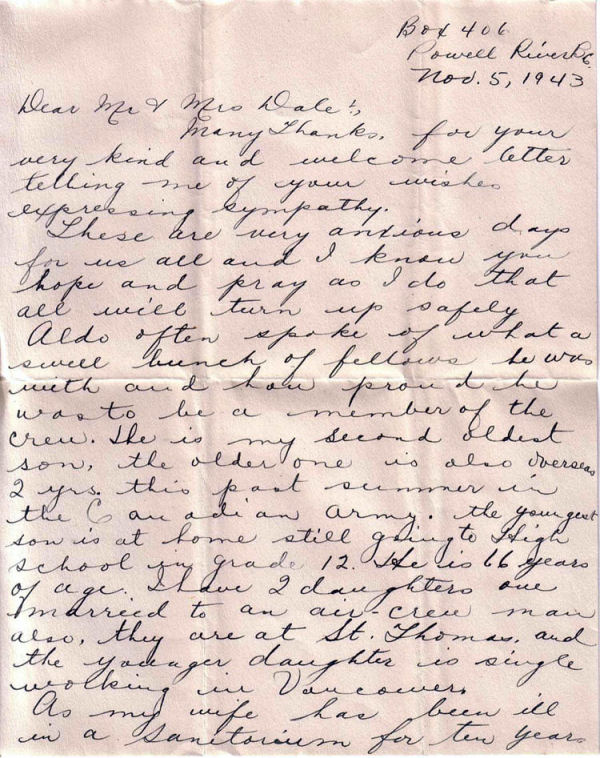 Box 406
Powell River B.C.
Nov. 5, 1943
Dear Mr & Mrs Dale:,
Many Thanks, for your
very kind and welcome letter
telling me of your wishes
expressing sympathy.
These are very anxious days
for us all and I know you
hope and pray as I do that
all will turn up safely
Aldo often spoke of what a
swell bunch of fellows he was
with and how proud he
was to be a member of the
crew. He is my second oldest
son, the older one is also overseas
2 yrs. this past summer in
the Canadian army. the youngest
son is at home still going to High
school in grade 12. He is 16 years
of age. I have 2 daughters one
married to an air crew man
also, they are at St. Thomas, and
the younger daughter is single
working in Vancouver.
As my wife has been ill
in a sanitorium for ten years